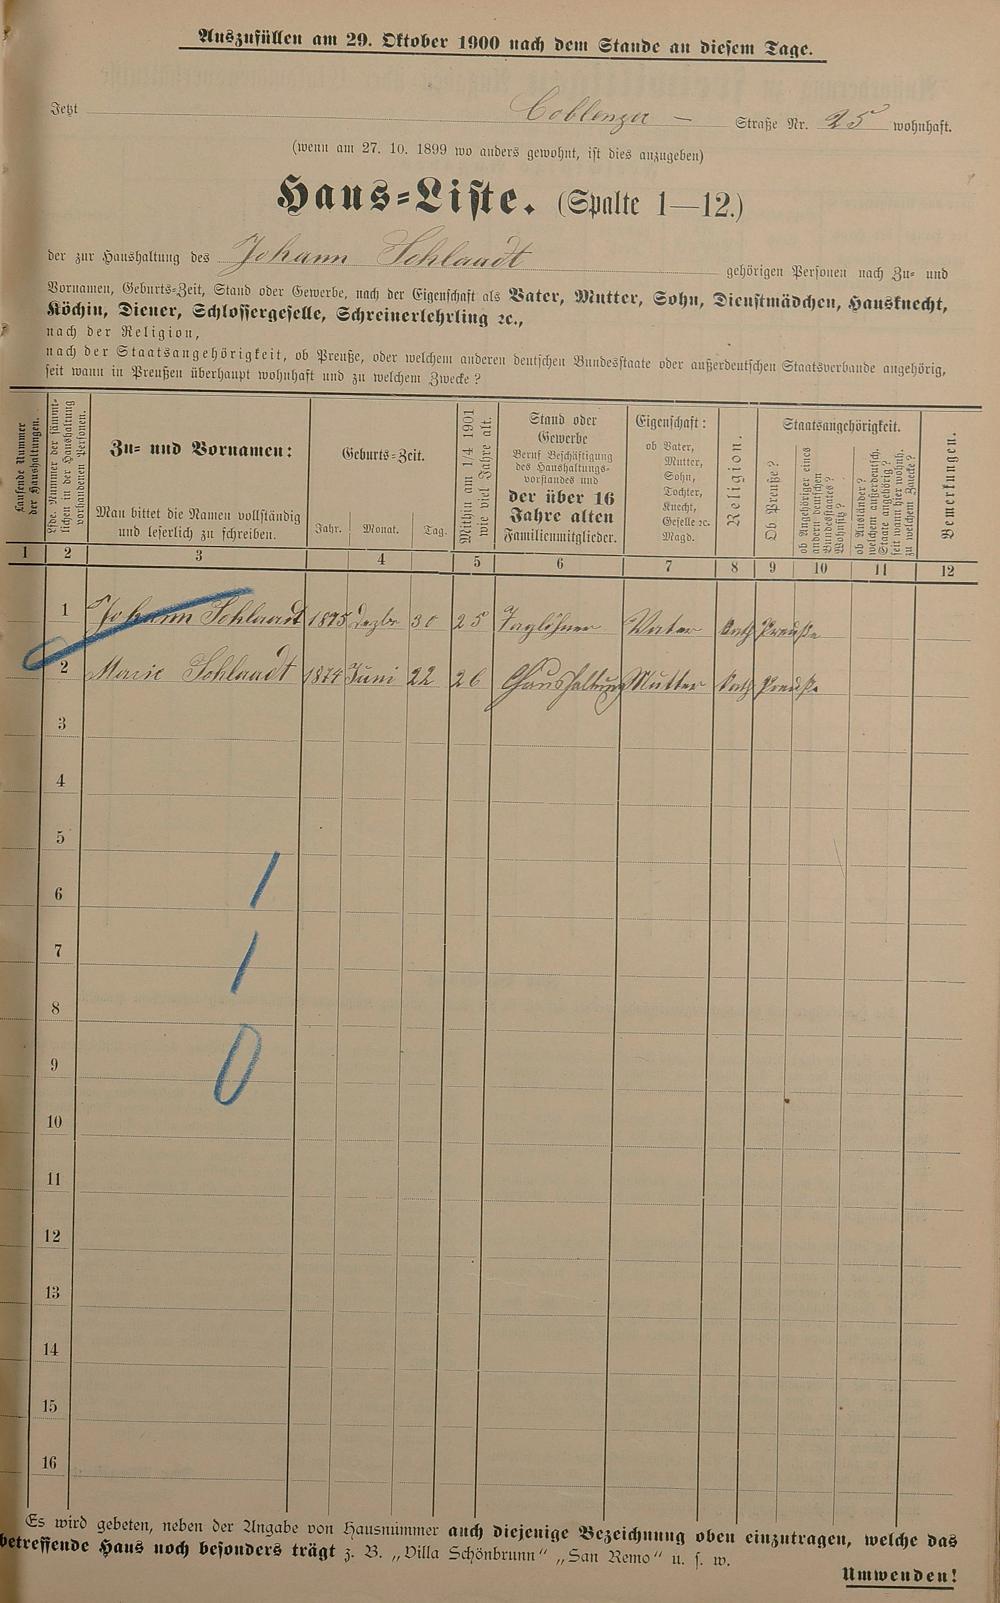 Auszufüllen am 29. Oktober 1900 nach dem Stande an diesem Tage.
Jetzt Coblenzer - Straße Nr. 25 wohnhaft.
(wenn am 27. 10. 1899 wo anders gewohnt, ist dies anzugeben)
Haus=Liste. (Spalte 1—12.)
der zur Haushaltung des Johann Schlaadt gehörigen Personen nach Zu- und
Vornamen, Geburts=Zeit, Stand oder Gewerbe, nach der Eigenschaft als Vater, Mutter, Sohn, Dienstmädchen, Hausknecht,
Köchin, Diener, Schlossergeselle, Schreinerlehrling ꝛc.,
nach der Religion,
nach der Staatsangehörigkeit, ob Preuße, oder welchem anderen deutschen Bundesstaate oder außerdeutschen Staatsverbande angehörig,
seit wann in Preußen überhaupt wohnhaft und zu welchem Zwecke?
Laufende Nummer
der Haushaltungen.
Lfde. Nummer der sämmt-
lichen in der Haushaltung
vorhandenen Personen.
Zu= und Vornamen:
Man bittet die Namen vollständig
und leserlich zu schreiben.
Geburts=Zeit.
Jahr. Monat. Tag.
Mithin am 1/4 1901
wie viel Jahre alt.
Stand oder
Gewerbe
Beruf Beschäftigung
des Haushaltungs-
vorstandes und
der über 16
Jahre alten
Familienmitglieder.
Eigenschaft:
ob Vater,
Mutter,
Sohn,
Tochter,
Knecht,
Geselle ꝛc.
Magd.
Religion.
Staatsangehörigkeit.
Ob Preuße?
ob Angehöriger eines
andern deutschen
Bundesstaates?
Wohnsitz?
ob Ausländer?
welchem außerdeutsch.
Staate angehörig?
seit wann hier wohnh.
zu welchem Zwecke?
Bemerkungen.
1 2 3 4 5 6 7 8 9 10 11 12
1 Johann Schlaadt 1875 Dezbr 30 25 Taglöhner Vater Kath Preuße
2 Marie Schlaadt 1874 Juni 22 26 Haushaltung Mutter Kath Preuße
3
4
5
6 1
7 1
8
9 0
10
11
12
13
14
15
16
Es wird gebeten, neben der Angabe von Hausnummer auch diejenige Bezeichnung oben einzutragen, welche das
betreffende Haus noch besonders trägt z. B. „Villa Schönbrunn“ „San Remo“ u. s. w.
Umwenden!